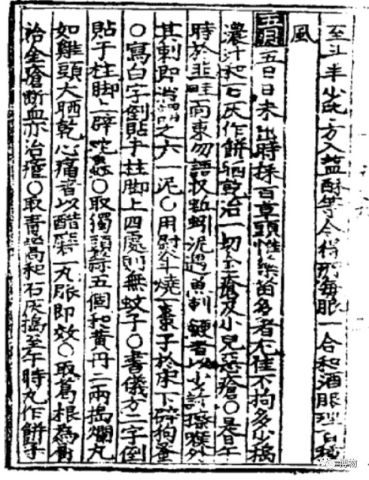 至斗半少時方入藍酥等令得所每服一合和酒服理白癜
風
五月五日日未出時採百草頭惟藥苗多者尤佳不拘多少搗
濃汁和石灰作餅晒乾治一切金瘡及小兒惡瘡○是日午
時於韭畦面東勿語收蚯蚓泥遇魚刺鯁者以少許擦喉外
其刺即消謂之六一泥○用熨斗燒一棗子於床下辟狗蚤
○寫白字倒貼于柱脚上四處則無蚊子○書儀方二字倒
貼于柱脚上辟蛇虺○取獨頭蒜五個和黃丹二兩搗爛丸
如雞頭大晒乾心痛者以醋磨一丸服即效○取葛根為屑
治金瘡斷血亦治瘧○取青蒿和石灰搗至午時丸作餅子